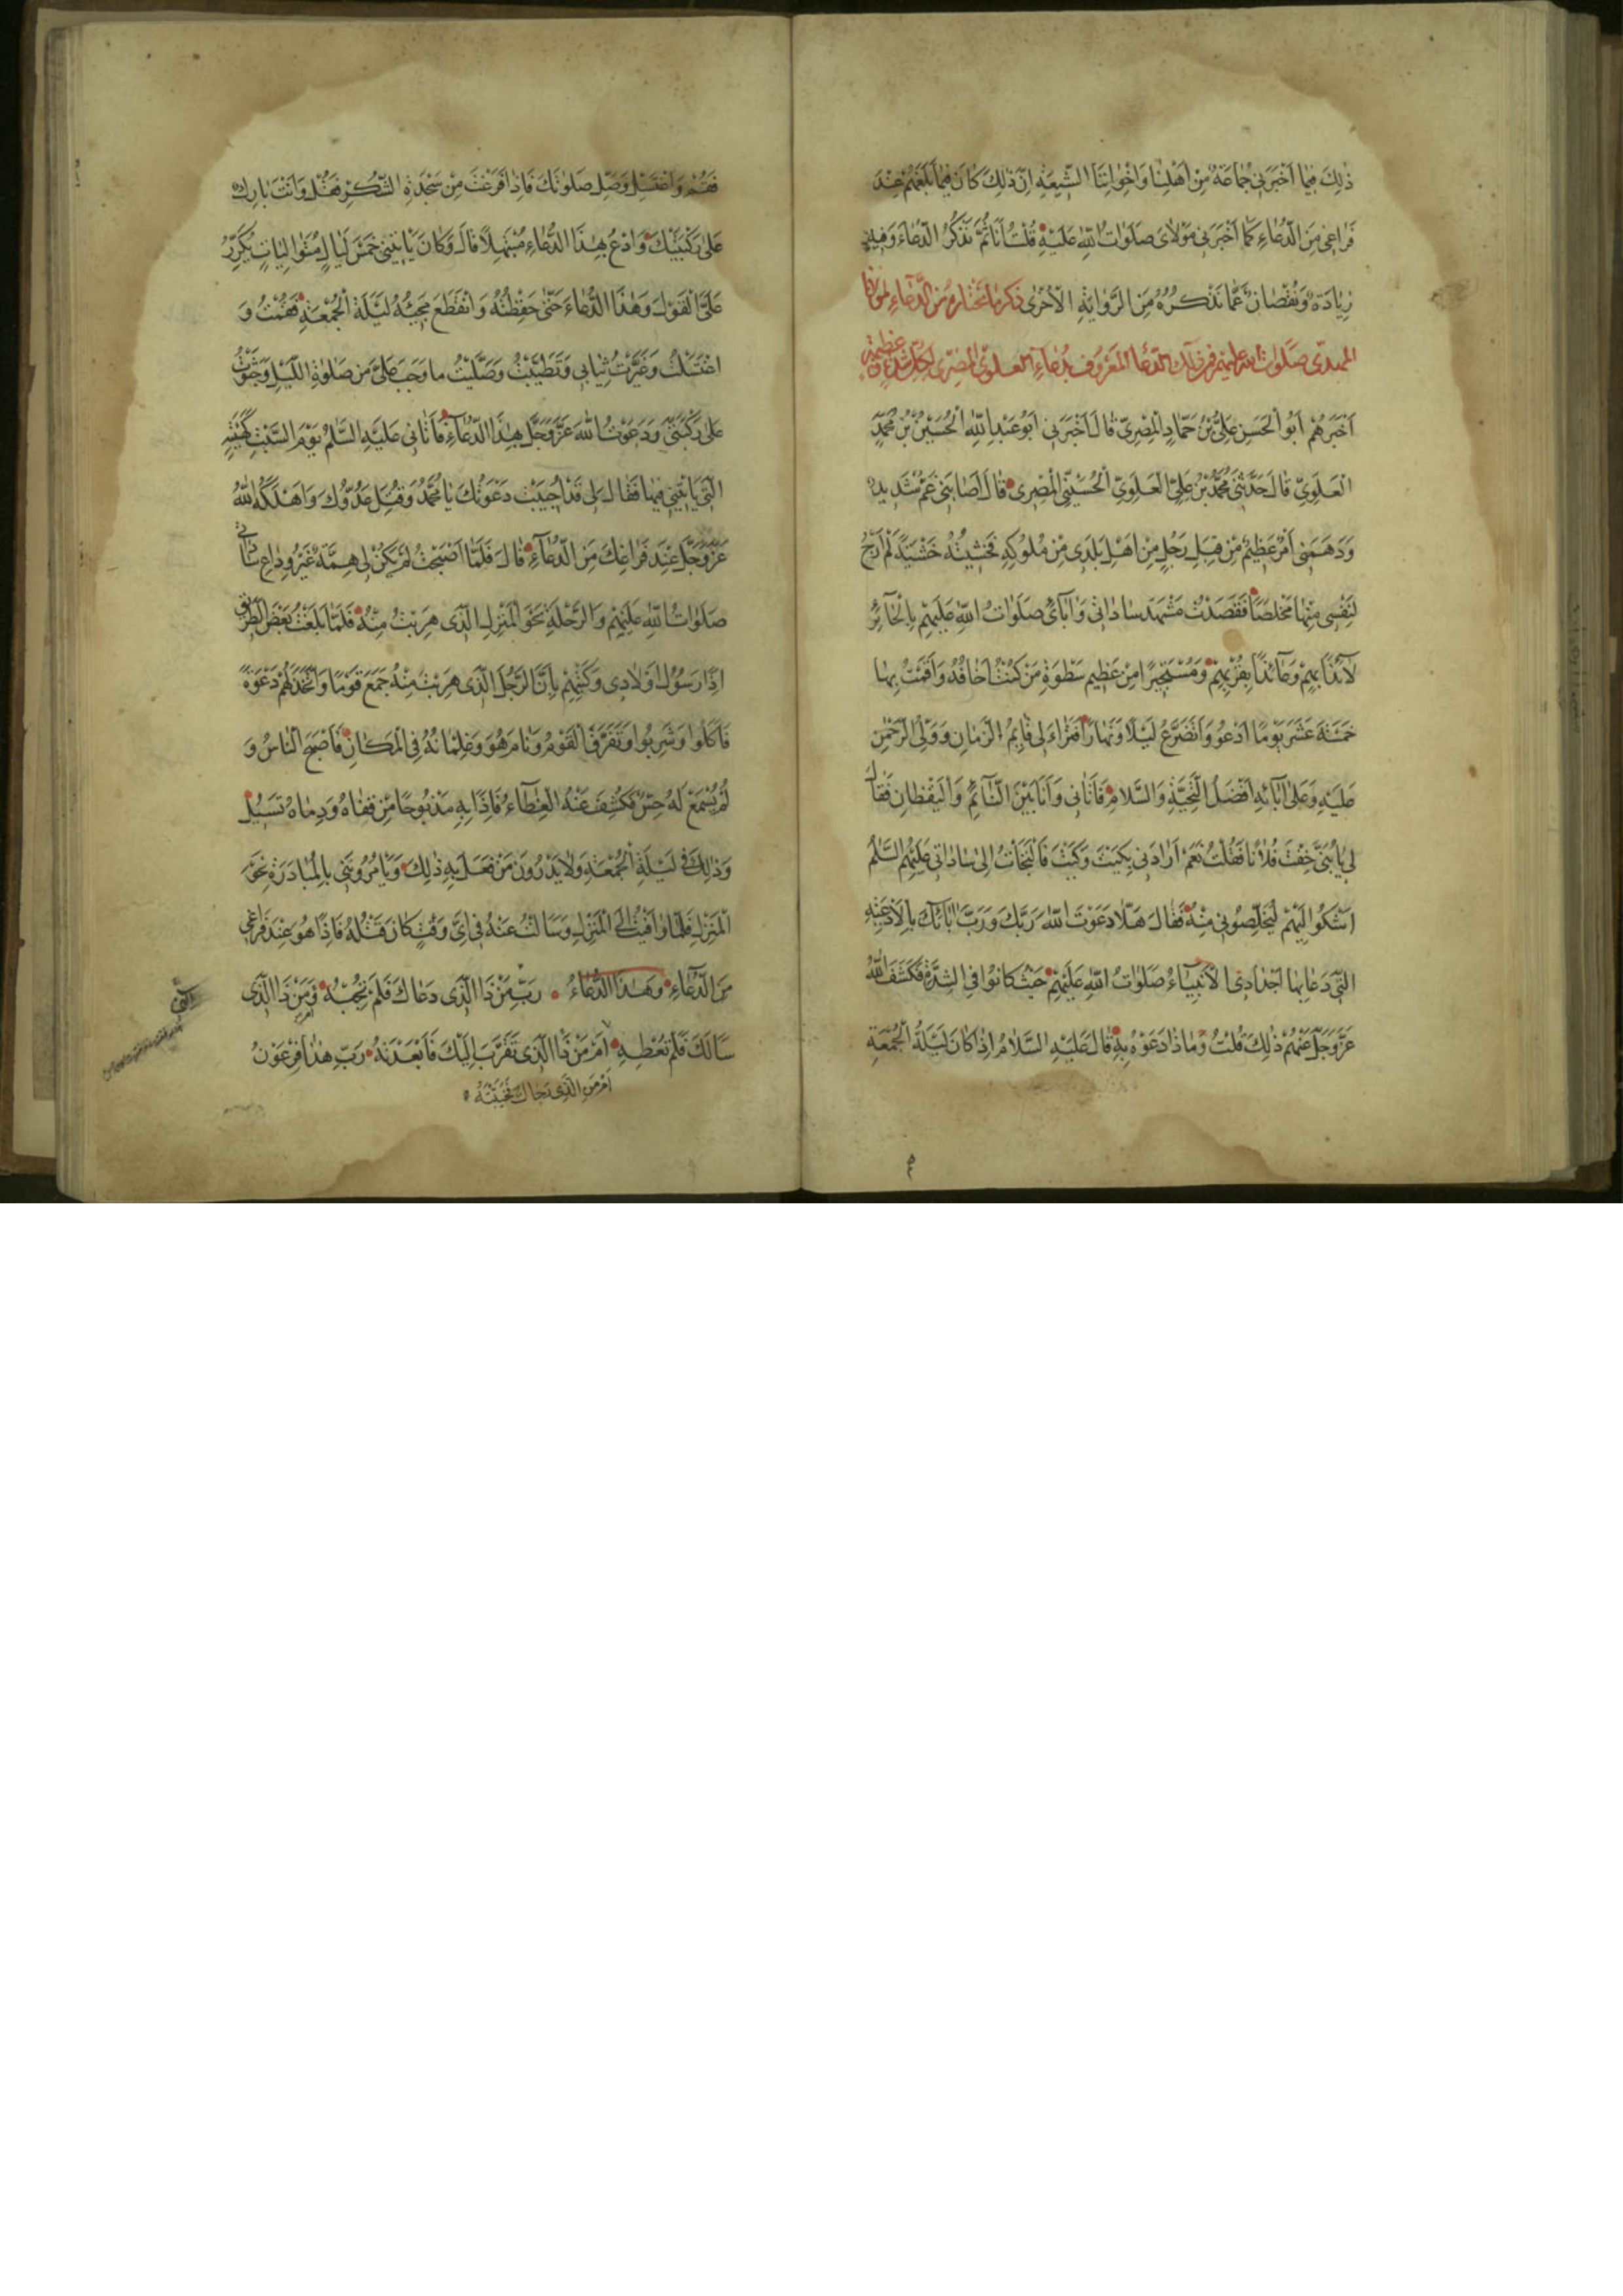 ذٰلِكَ فيما اَخْبَرَنى جَماعَةٌ مِنْ اَهْلِنا وَاِخْوانِنَا الشّيعَةِ اِنَّ ذٰلِكَ كانَ فيما بَلَغَهُمْ عِنْدَ
فَراغى مِنَ الدُّعاءِ كَما اَخْبَرَنى مَوْلاىَ صَلَواتُ اللّٰهِ عَلَيْهِ قُلْتُ اَنَا ثُمَّ نَذْكُرُ الدُّعاءَ وَفيهِ
زِيادَةٌ وَنُقْصانٌ عَمّا نَذْكُرُهُ مِنَ الرِّوايَةِ الْاُخْرٰى ذكر ما نختاره من الدّعاء لمولانا
المهدى صلوات الله عليه فمن ذلك الدّعاء المعروف بدعاء العلوىّ المصرى لكل شديدة عظيمة
اَخْبَرَهُمْ اَبُو الْحَسَنِ عَلِىُّ بْنُ حَمّادٍ الْمِصْرِىُّ قالَ اَخْبَرَنى اَبُو عَبْدِ اللّٰهِ الْحُسَيْنُ بْنُ مُحَمَّدٍ
الْعَلَوِىُّ قالَ حَدَّثَنى مُحَمَّدُ بْنُ عَلِىٍّ الْعَلَوِىُّ الْحُسَيْنِىُّ الْمِصْرِى قالَ اَصابَنى غَمٌّ شَديدٌ
وَدَهَمَنى اَمْرٌ عَظيمٌ مِنْ قِبَلِ رَجُلٍ مِنْ اَهْلِ بَلَدى مِنْ مُلُوكِهِ فَخَشيتُهُ خَشْيَةً لَمْ اَرْجُ
لِنَفْسى مِنْها مَخْلَصًا فَقَصَدْتُ مَشْهَدَ ساداتى وَآبائى صَلَواتُ اللّٰهِ عَلَيْهِمْ بِالْحائِرِ
لائِذًا بِهِمْ وَعائِذًا بِقَبْرِهِمْ وَمُسْتَجيرًا مِنْ عَظيمِ سَطْوَةِ مَنْ كُنْتُ اَخافُهُ وَاَقَمْتُ بِها
خَمْسَةَ عَشَرَ يَوْمًا اَدْعُو وَاَتَضَرَّعُ لَيْلًا وَنَهارًا فَتَراءى لى قائِمُ الزَّمانِ وَوَلِىُّ الرَّحْمٰنِ
عَلَيْهِ وَعَلٰى آبائِهِ اَفْضَلُ التَّحِيَّةِ وَالسَّلامِ فَاَتانى وَاَنَا بَيْنَ النّائِمِ وَالْيَقْظانِ فَقالَ
لى يا بُنَىَّ خِفْتَ فُلانًا فَقُلْتُ نَعَمْ اَرادَنى بِكَيْتَ وَكَيْتَ فَالْتَجَأْتُ اِلٰى ساداتى عَلَيْهِمُ السَّلٰمُ
اَشْكُو اِلَيْهِمْ لِيُخَلِّصُونى مِنْهُ فَقالَ هَلّا دَعَوْتَ اللّٰهَ رَبَّكَ وَرَبَّ آبائِكَ بِالْاَدْعِيَةِ
الَّتى دَعا بِها اَجْدادِى الْاَنْبِياءُ صَلَواتُ اللّٰهِ عَلَيْهِمْ حَيْثُ كانُوا فِى الشِّدَّةِ فَكَشَفَ اللّٰهُ
عَزَّوَجَلَّ عَنْهُمْ ذٰلِكَ قُلْتُ وَماذا دَعَوْهُ بِهِ قالَ عَلَيْهِ السَّلامُ اِذا كانَ لَيْلَةُ الْجُمُعَةِ
فَقُمْ وَاغْتَسِلْ وَصَلِّ صَلوتَكَ فَاِذا فَرَغْتَ مِنْ سَجْدَةِ الشُّكْرِ فَقُلْ وَاَنْتَ بارِكٌ
عَلٰى رُكْبَتَيْكَ وَادْعُ بِهٰذَا الدُّعاءِ مُبْتَهِلًا قالَ وَكانَ يَأْتينى خَمْسَ لَيالٍ مُتَوالِياتٍ يُكَرِّرُ
عَلَىَّ الْقَوْلَ وَهٰذَا الدُّعاءَ حَتّٰى حَفِظْتُهُ وَانْقَطَعَ مَجيئُهُ لَيْلَةَ الْجُمُعَةِ فَقُمْتُ وَ
اغْتَسَلْتُ وَغَيَّرْتُ ثِيابى وَتَطَيَّبْتُ وَصَلَّيْتُ ما وَجَبَ عَلَىَّ مِنْ صَلوةِ اللَّيْلِ وَجَثَوْتُ
عَلٰى رُكْبَتَىَّ وَدَعَوْتُ اللّٰهَ عَزَّوَجَلَّ بِهٰذَا الدُّعاءِ فَاَتانى عَلَيْهِ السَّلٰمُ يَوْمَ السَّبْتِ كَهَيْئَتِهِ
الَّتى يَأْتينى فيها فَقالَ لى قَدْ اُجيبَتْ دَعْوَتُكَ يا مُحَمَّدُ وَقُتِلَ عَدُوُّكَ وَاَهْلَكَهُ اللّٰهُ
عَزَّوَجَلَّ عِنْدَ فَراغِكَ مِنَ الدُّعاءِ قالَ فَلَمّا اَصْبَحْتُ لَمْ يَكُنْ لى هِمَّةٌ غَيْرُ وِداعِ ساداتى
صَلَواتُ اللّٰهِ عَلَيْهِمْ وَالرِّحْلَةِ نَحْوَ الْمَنْزِلِ الَّذى هَرَبْتُ مِنْهُ فَلَمّا بَلَغْتُ بَعْضَ الطَّريقِ
اِذًا رَسُولُ اَوْلادى وَكُتُبُهُمْ بِاَنَّ الرَّجُلَ الَّذى هَرَبْتَ مِنْهُ جَمَعَ قَوْمًا وَاتَّخَذَ لَهُمْ دَعْوَةً
فَاَكَلُوا وَشَرِبُوا وَتَفَرَّقَ الْقَوْمُ وَنامَ هُوَ وَغِلْمانُهُ فِى الْمَكانِ فَاَصْبَحَ النّاسُ وَ
لَمْ يُسْمَعْ لَهُ حِسٌّ فَكُشِفَ عَنْهُ الْغِطاءُ فَاِذا بِهِ مَذْبُوحًا مِنْ قَفاهُ وَدِماهُ تَسيلُ
وَذٰلِكَ فى لَيْلَةِ الْجُمُعَةِ وَلا يَدْرُونَ مَنْ فَعَلَ بِهِ ذٰلِكَ وَيَأْمُرُونَنى بِالْمُبادَرَةِ نَحْوَ
الْمَنْزِلِ فَلَمّا وافَيْتُ اِلَى الْمَنْزِلِ وَسَاَلْتُ عَنْهُ فى اَىِّ وَقْتٍ كانَ قَتْلُهُ فَاِذا هُوَ عِنْدَ فَراغى
مِنَ الدُّعاءِ وَهٰذَا الدُّعاءُ رَبِّ مَنْ ذَا الَّذى دَعاكَ فَلَمْ تُجِبْهُ وَمَنْ ذَا الَّذى
سَاَلَكَ فَلَمْ تُعْطِهِ اَمْ مَنْ ذَا الَّذى تَقَرَّبَ اِلَيْكَ فَاَبْعَدْتَهُ رَبِّ هٰذا فِرْعَوْنُ
اَمْ مَنِ الَّذى رَجاكَ فَخَيَّبْتَهُ